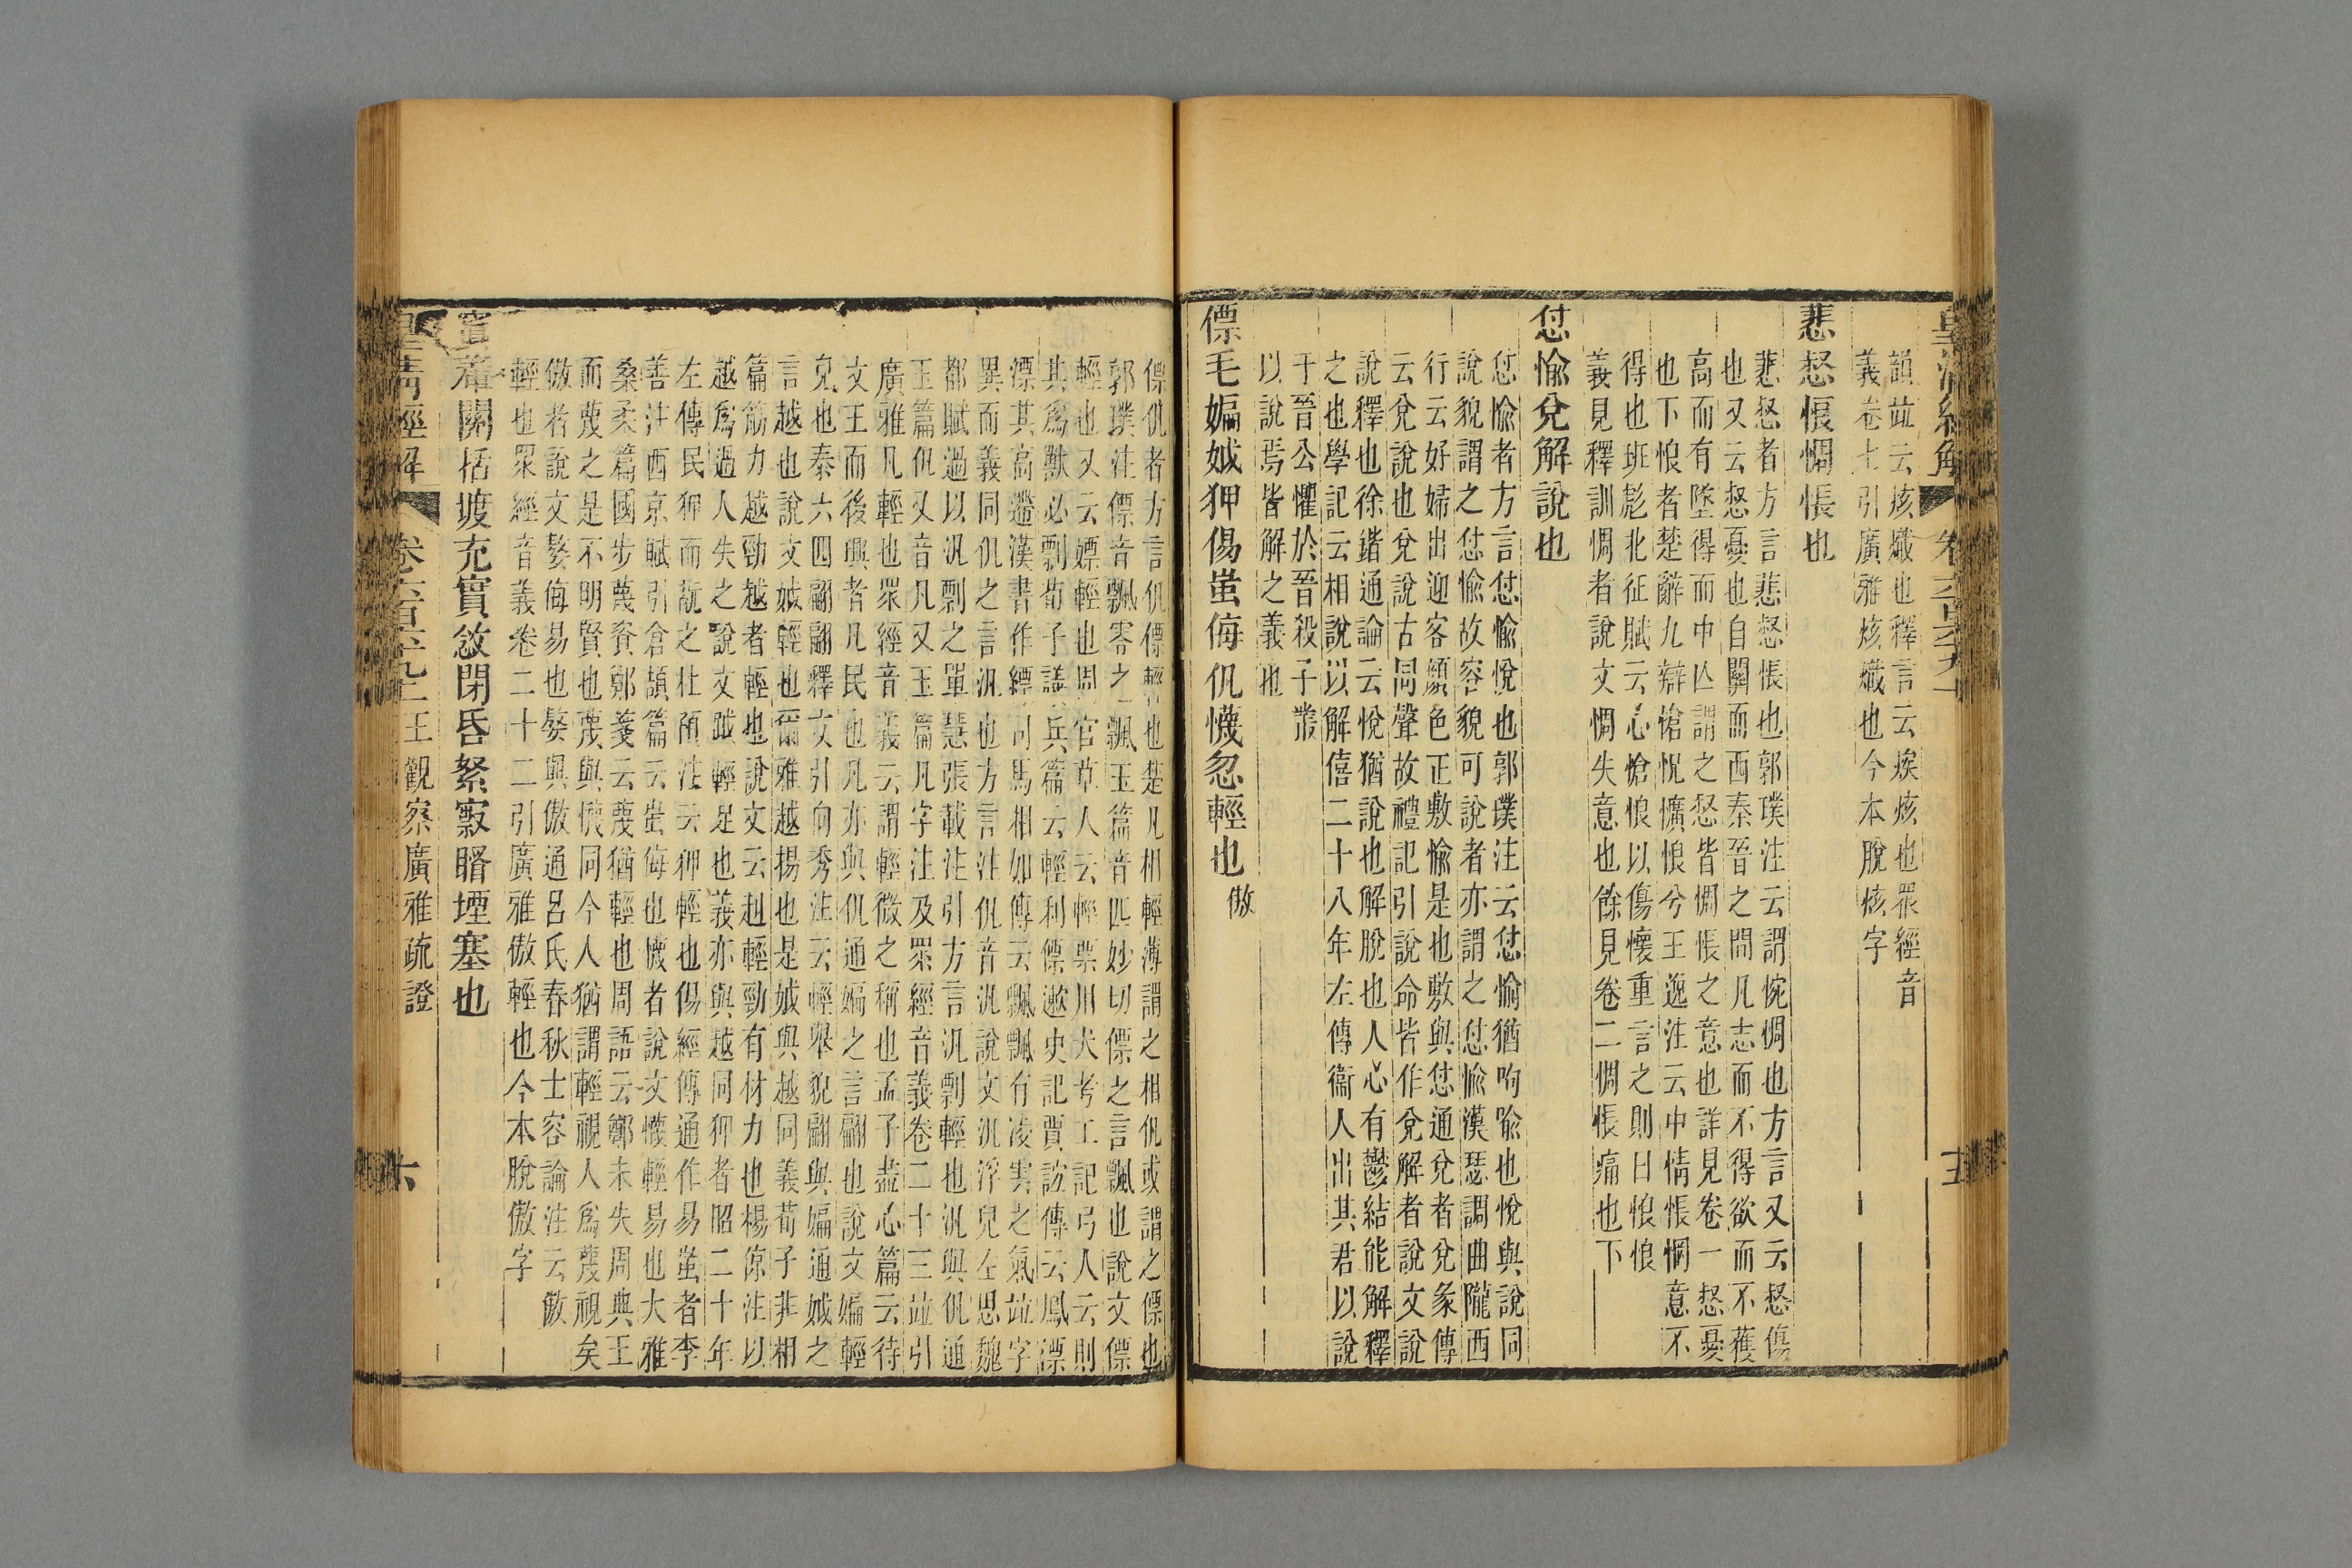 皇清經解
韻竝云烗熾也釋言云烗也眾經音
義卷七引廣雅烗熾也今本脫烗字
悲惄悢惆悵也
悲惄者方言悲惄悵也郭璞注云謂惋惆也方言又云惄傷
也又云惄憂也自關而西秦晉之間凡志而不得欲而不獲
高而有墜得而中亾謂之惄皆惆悵之意也詳見卷一惄憂
也下悢者楚辭九辯愴怳懭悢兮王逸注云中情悵惘意不
得也班彪北征賦云心愴悢以傷懷重言之則曰悢悢
義見釋訓惆者說文惆失意也餘見卷二惆悵痛也下
怤愉兌解說也
怤愉者方言怤愉悅也郭璞注云怤愉猶呴喻也悅與說同
說貌謂之怤愉故容貌可說者亦謂之怤愉漢瑟調曲隴西
行云好婦出迎客顏色正敷愉是也敷與怤通兌者兌彖傳
云兌說也兌說古同聲故禮記引說命皆作兌解者說文說
說釋也徐鍇通論云悅猶說也解脫也人心有鬱結能解釋
之也學記云相說以解僖二十八年左傳衞人出其君以說
于晉公懼於晉殺子叢
以說焉皆解之義也
僄毛㛹娍狎傷蚩侮仉懱忽輕也傲
僄仉者方言仉僄輕也楚凡相輕薄謂之相仉或謂之僄也
郭璞注僄音飄零之飄玉篇音匹妙切僄之言飄也說文僄
輕也又云嫖輕也周官草人云輕㷄用犬考工記弓人云則
其爲獸必剽荀子議兵篇云輕利僄遬史記賈誼傳云鳳漂
漂其高遰漢書作縹司馬相如傳云飄飄有凌雲之氣竝字
異而義同仉之言汎也方言注仉音汎說文汎浮皃左思魏
都賦過以汎剽之單慧張載注引方言汎剽輕也汎與仉通
玉篇仉又音凡又玉篇凡字注及眾經音義卷二十三竝引
廣雅凡輕也眾經音義云謂輕微之稱也孟子盡心篇云待
文王而後興者凡民也凡亦與仉通㛹之言翩也說文㛹輕
皃也泰六四翩翩釋文引向秀注云輕舉貌翩與㛹通娍之
言越也說文娍輕也爾雅越揚也是娍與越同義荀子非相
篇筋力越勁越者輕也說文云赳輕勁有材力也楊倞注以
越爲過人失之說文跋輕足也義亦與越同狎者昭二十年
左傳民狎而翫之杜預注云狎輕也傷經傳通作易蚩者李
善注西京賦引倉頡篇云蚩侮也懱者說文懱輕易也大雅
桑柔篇國步蔑資鄭箋云蔑猶輕也周語云鄭未失周典王
而蔑之是不明賢也蔑與懱同今人猶謂輕視人爲蔑視矣
傲者說文嫯侮易也嫯與傲通呂氏春秋士容論注云傲
輕也眾經音義卷二十二引廣雅傲輕也今本脫傲字
關括㙄充實敜閉昏䋈窾㬱堙塞也
皇清經解 王觀察廣雅疏證 六